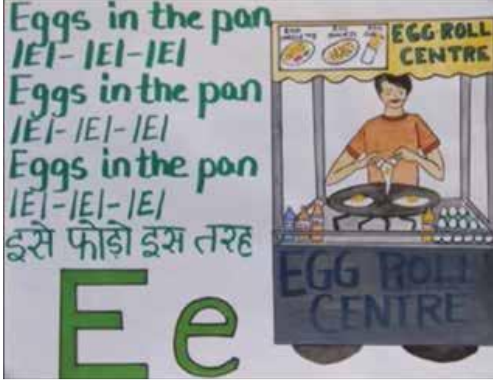 Eggs in the pan
/E/- /E/-/E/
Eggs in the pan
/E/- /E/- /E/
Eggs in the pan
/E/-/E/-/E/
इसे फोड़ो इस तरह
E e
EGG ROLL
CENTRE
EGG ROLL
CENTRE